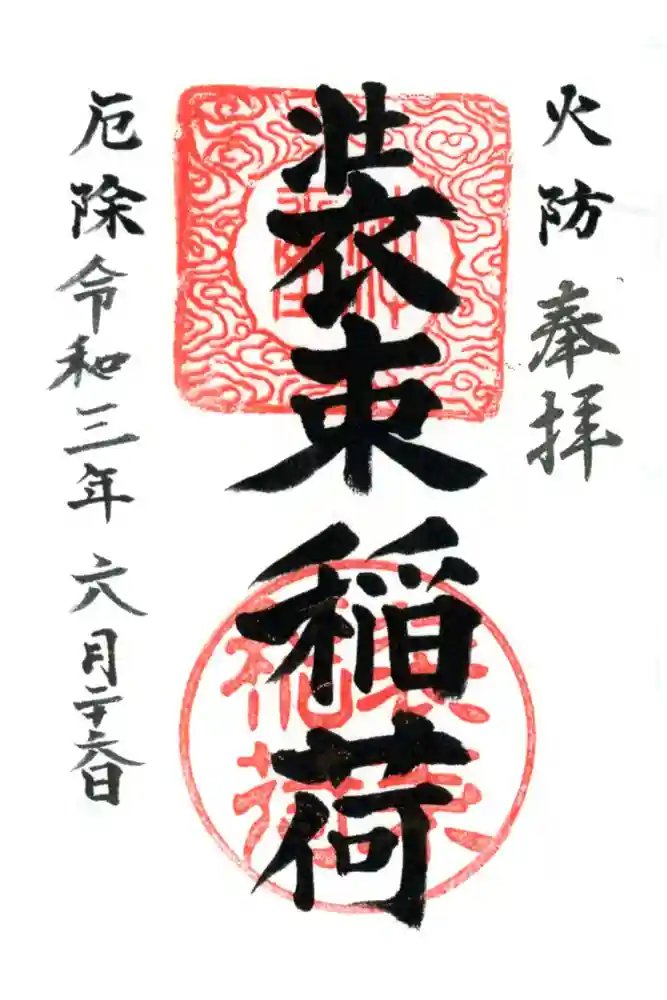 火防 奉拝
装束稲荷
装束
稲荷
厄除 令和三年 六月二十六日